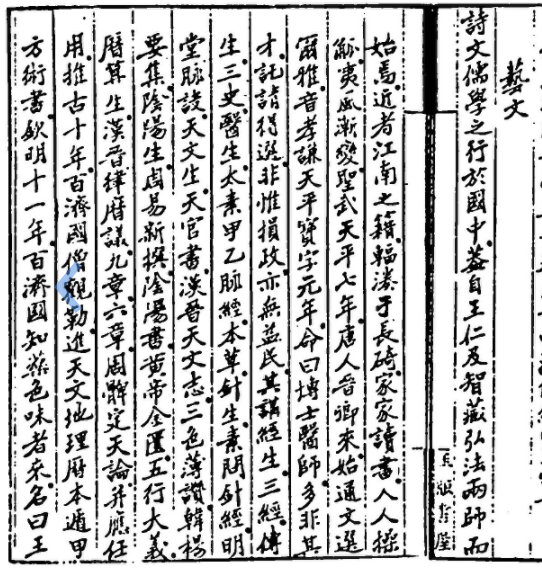 藝文
詩文儒學之行於國中蓋自王仁及智藏弘法兩師而
始焉近者江南之籍輻湊于長碕家家讀書人人操
觚夷風漸變聖武天平七年唐人晉卿來始通文選
爾雅音孝謙天平寶字元年命曰博士醫師多非其
才託請得選非惟損政亦無益民其講經生三經傳
生三史醫生太素甲乙脈經本草針生素問針經明
堂脈訣天文生天官書漢晉天文志三色薄讚韓楊
要集陰陽生周易新撰陰陽書黃帝金匱五行大義
曆算生漢晉律曆議九章六章周髀定天論并應任
用推古十年百濟國僧觀勒進天文地理曆本遁甲
方術書欽明十一年百濟國知藥色味者來名曰王